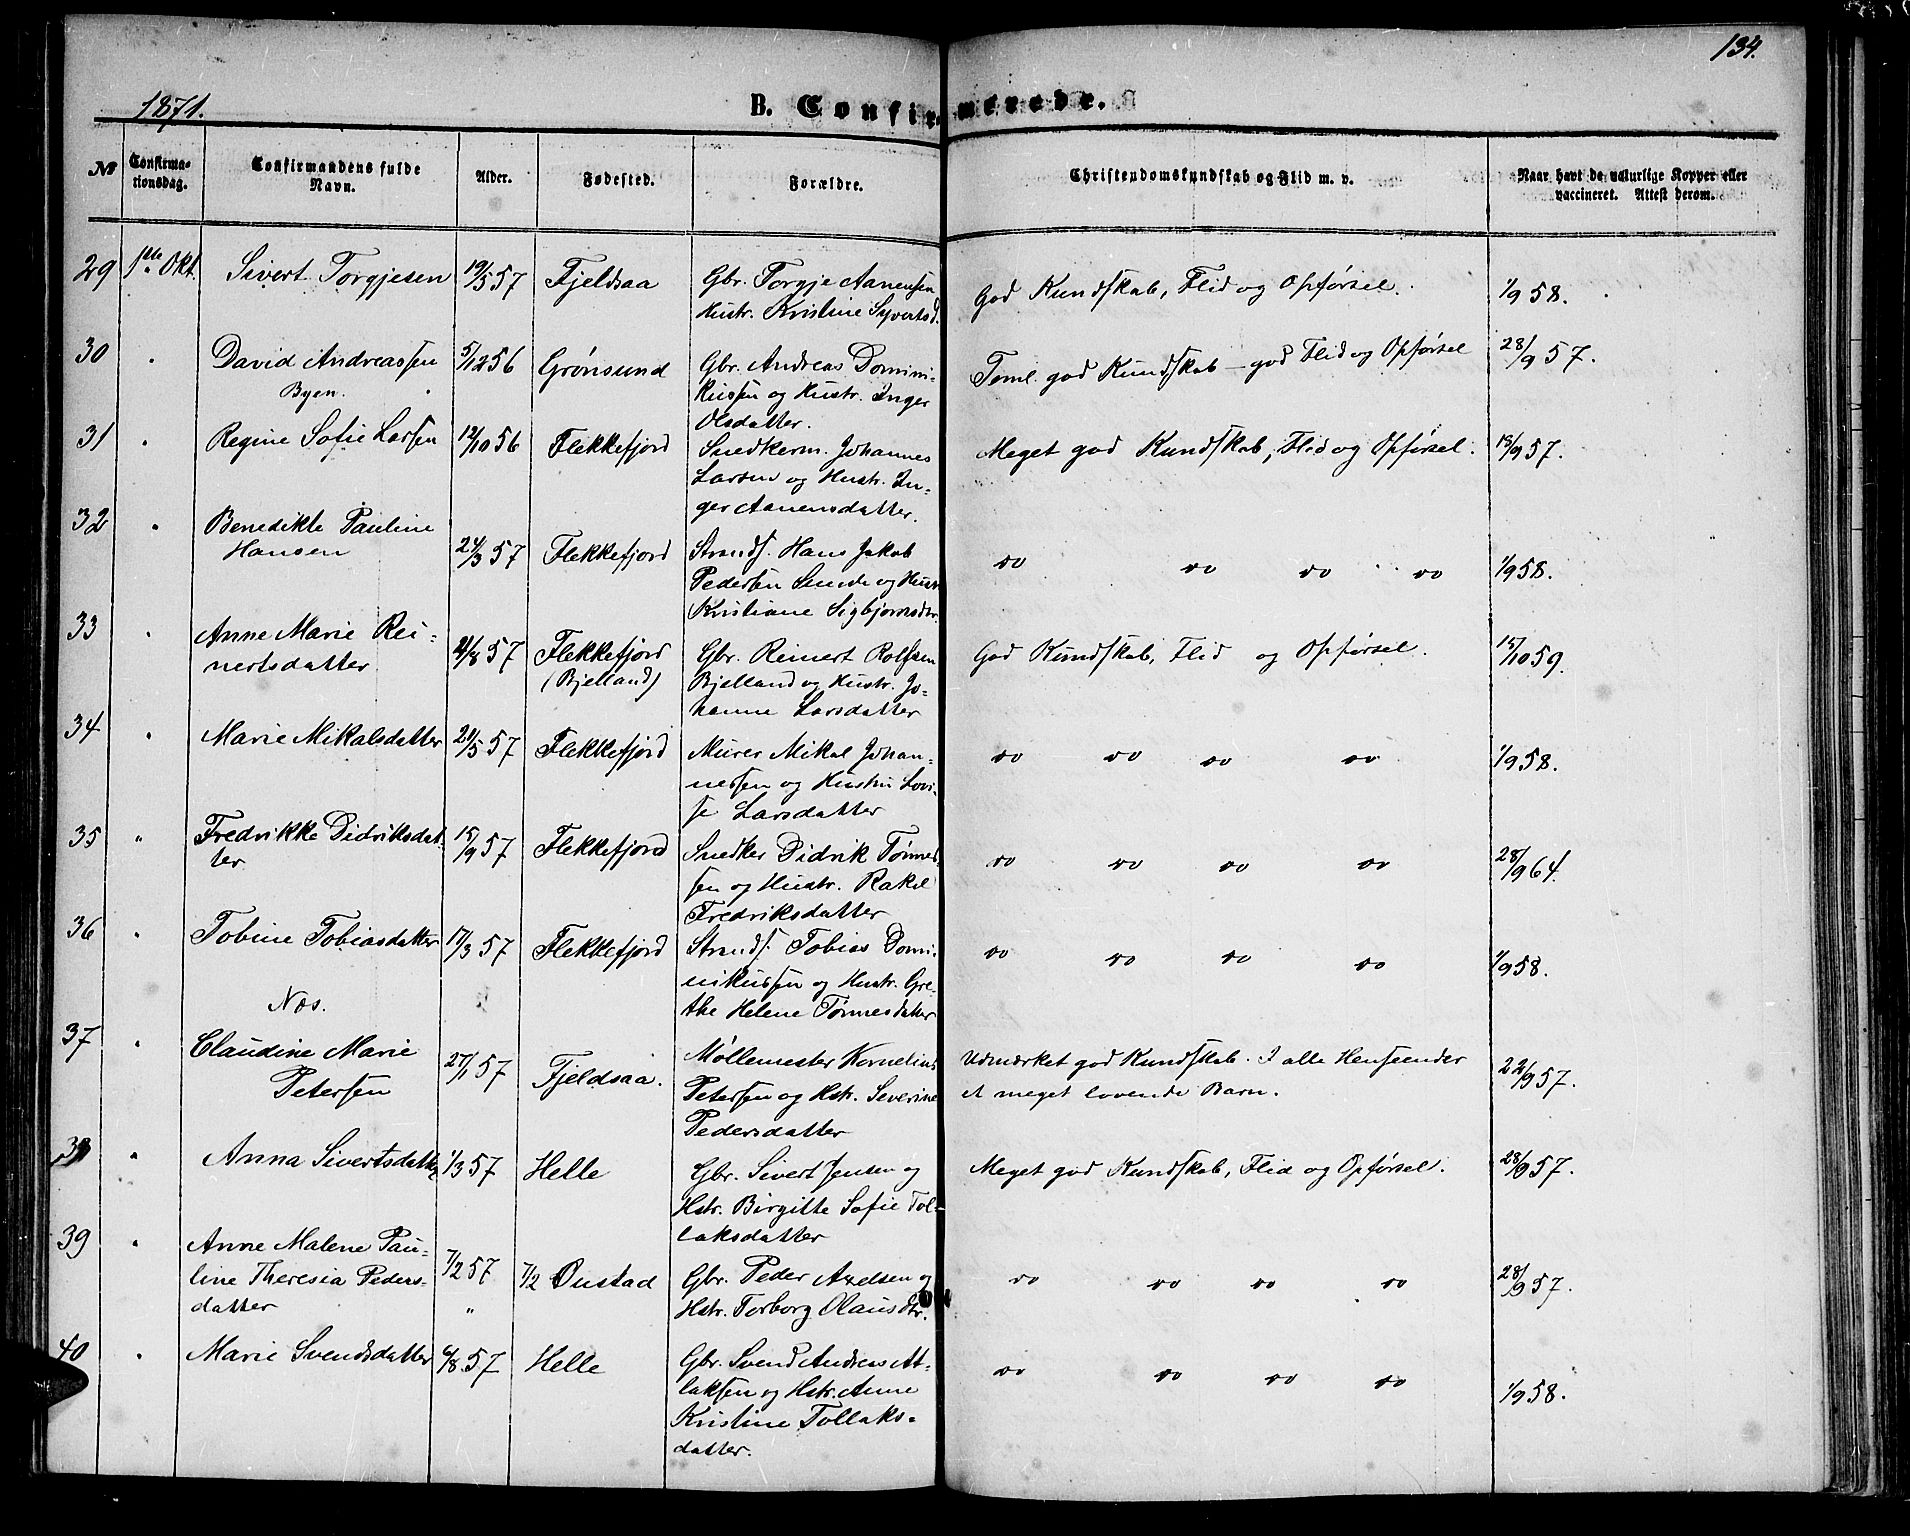 134.
1871.
B. Confirmerede.
№
Confirma-
tionsdag.
Confirmandens fulde
Navn.
Alder.
Fødested.
Forældre.
Christendomskundskab og Flid m. v.
Naar havt de naturlige Kopper eller
vaccineret. Attest derom.
29 1ste Okt. Sivert Torgjesen 19/5 57 Fjeldsaa Gbr. Torgje Aanensen God Kundskab, Flid og Opførsel. 1/9 58.
Hustr. Kristine Syvertsd.
30 " David Andreassen 5/12 56 Grønsund Gbr. Andreas Domini- Teml. god Kundskab - god Flid og Opførsel 28/9 57.
Byen. kussen og Hustr. Inger
Olsdatter.
31 " Regine Sofie Larsen 12/10 56 Flekkefjord Snedkerm. Johannes Meget god Kundskab, Flid og Opførsel. 18/9 57.
Larsen og Hustr. In-
ger Aanensdatter.
32 " Benedikte Pauline
Hansen 24/3 57 Flekkefjord Strands. Hans Jakob do do do do 1/9 58.
Pedersen Sunde og Hustr.
Kristiane Sigbjørnsdtr.
33 " Anne Marie Rei-
nertsdatter 21/8 57 Flekkefjord Gbr. Reinert Rolfsen God Kundskab, Flid og Opførsel. 15/10 59.
(Bjelland) Bjelland og Hustr. Jo-
hanne Larsdatter
34 " Marie Mikalsdatter 21/5 57 Flekkefjord Murer Mikal Johan- do do do do 1/9 58.
nessen og Hustru Lovi-
se Larsdatter
35 " Fredrikke Didriksdat-
ter 15/9 57 Flekkefjord Snedker Didrik Tønnes- do do do do 28/9 64.
sen og Hustr. Rakel
Fredriksdatter
36 " Tobine Tobiasdatter 17/3 57 Flekkefjord Strands. Tobias Domi- do do do do 1/9 58.
nikussen og Hustr. Gre-
Næs. the Helene Tønnesdatter
37 " Claudine Marie
Petersen 27/1 57 Fjeldsaa. Møllemester Kornelius Udmærket god Kundskab. I alle Henseender 22/9 57.
Petersen og Hstr. Severine et meget lovende Barn.
Pedersdatter
38 " Anna Sivertsdatter 1/3 57 Helle Gbr. Sivert Jensen og Meget god Kundskab, Flid og Opførsel. 28/9 57.
Hstr. Birgitte Sofie Tol-
laksdatter
39 " Anne Malene Pau-
line Theresia Peders-
datter 7/2 57 " 7/2 Oustad Gbr. Peder Axelsen og do do do do 28/9 57.
Hstr. Torborg Olausdtr.
40 " Marie Svendsdatter 6/8 57 Helle Gbr. Svend Andreas At- do do do do 1/9 58.
laksen og Hstr. Anne
Kristine Tollaks-
datter.